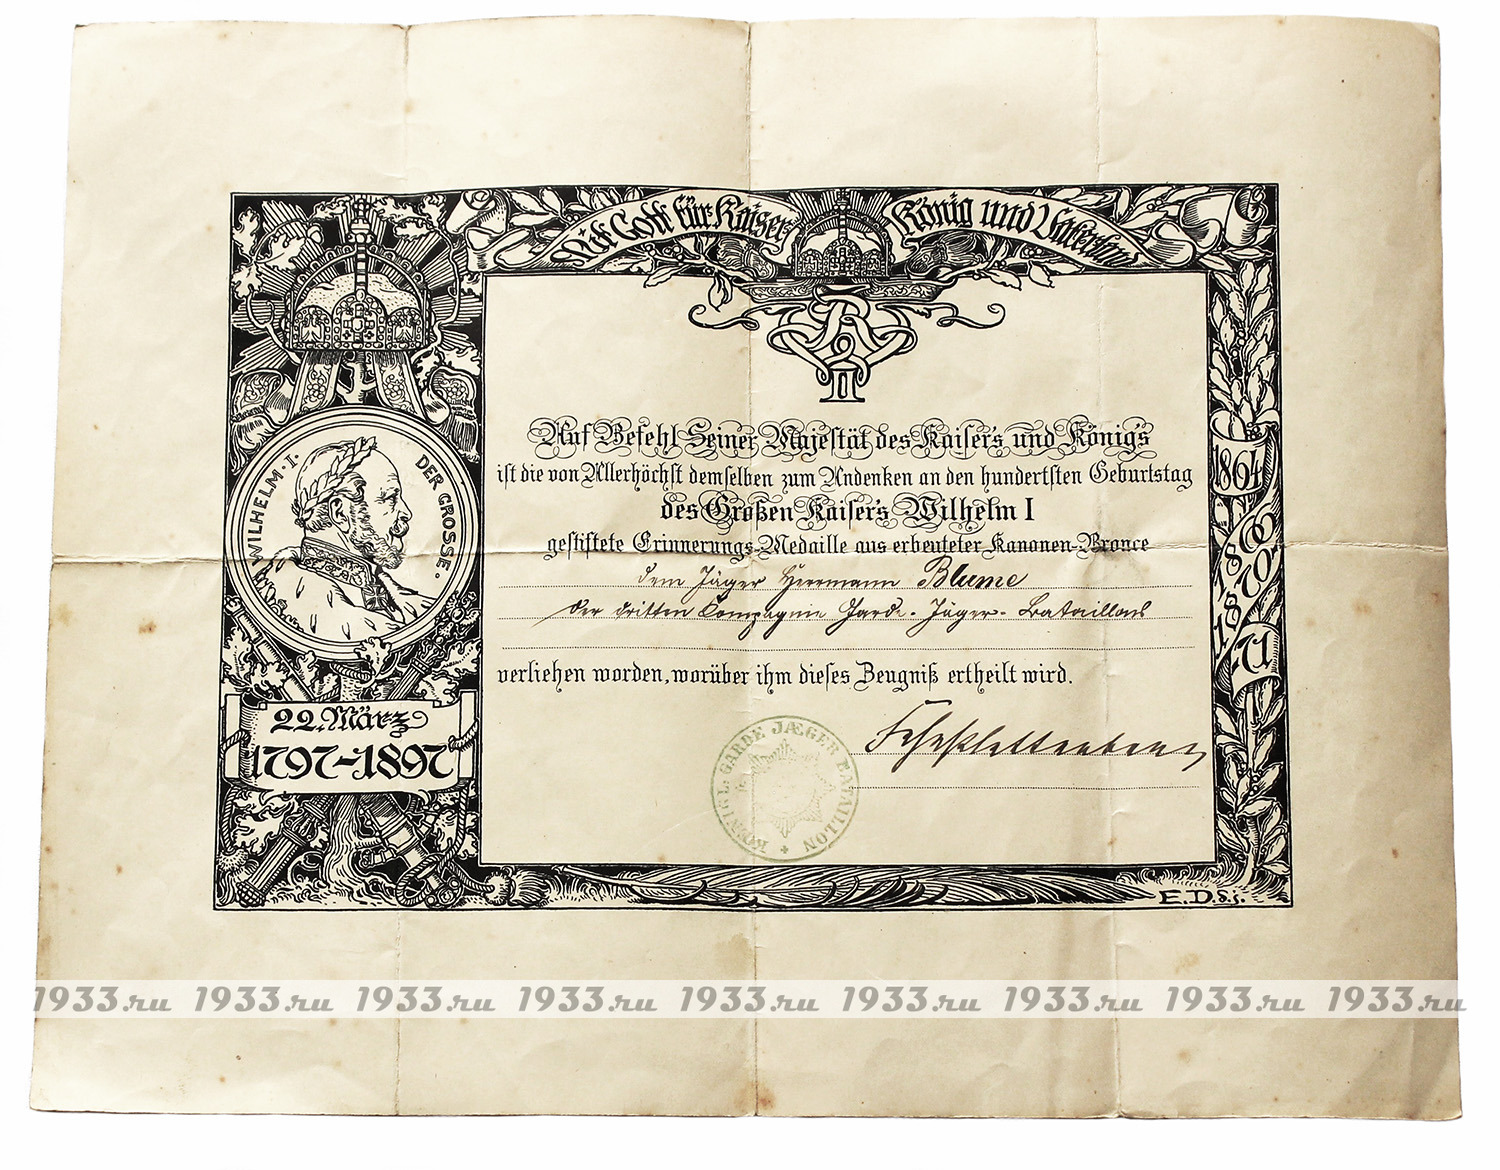 Mit Gott für Kaiser König und Vaterland
WILHELM · I · DER GROSSE ·
22. März
1797-1897
1864
1866
1870
1871
Auf Befehl Seiner Majestät des Kaisers und Königs
ist die von Allerhöchst demselben zum Andenken an den hundertsten Geburtstag
des Großen Kaisers Wilhelm I
gestiftete Erinnerungs-Medaille aus erbeuteter Kanonen-Bronce
dem Jäger Herrmann Blume
der dritten Compagnie Garde-Jäger-Bataillons
verliehen worden, worüber ihm dieses Zeugniß ertheilt wird.
KOENIGL: GARDE JÆGER BATAILLON
E.D.d.j.
1933.ru 1933.ru 1933.ru 1933.ru 1933.ru 1933.ru 1933.ru 1933.ru 1933.ru